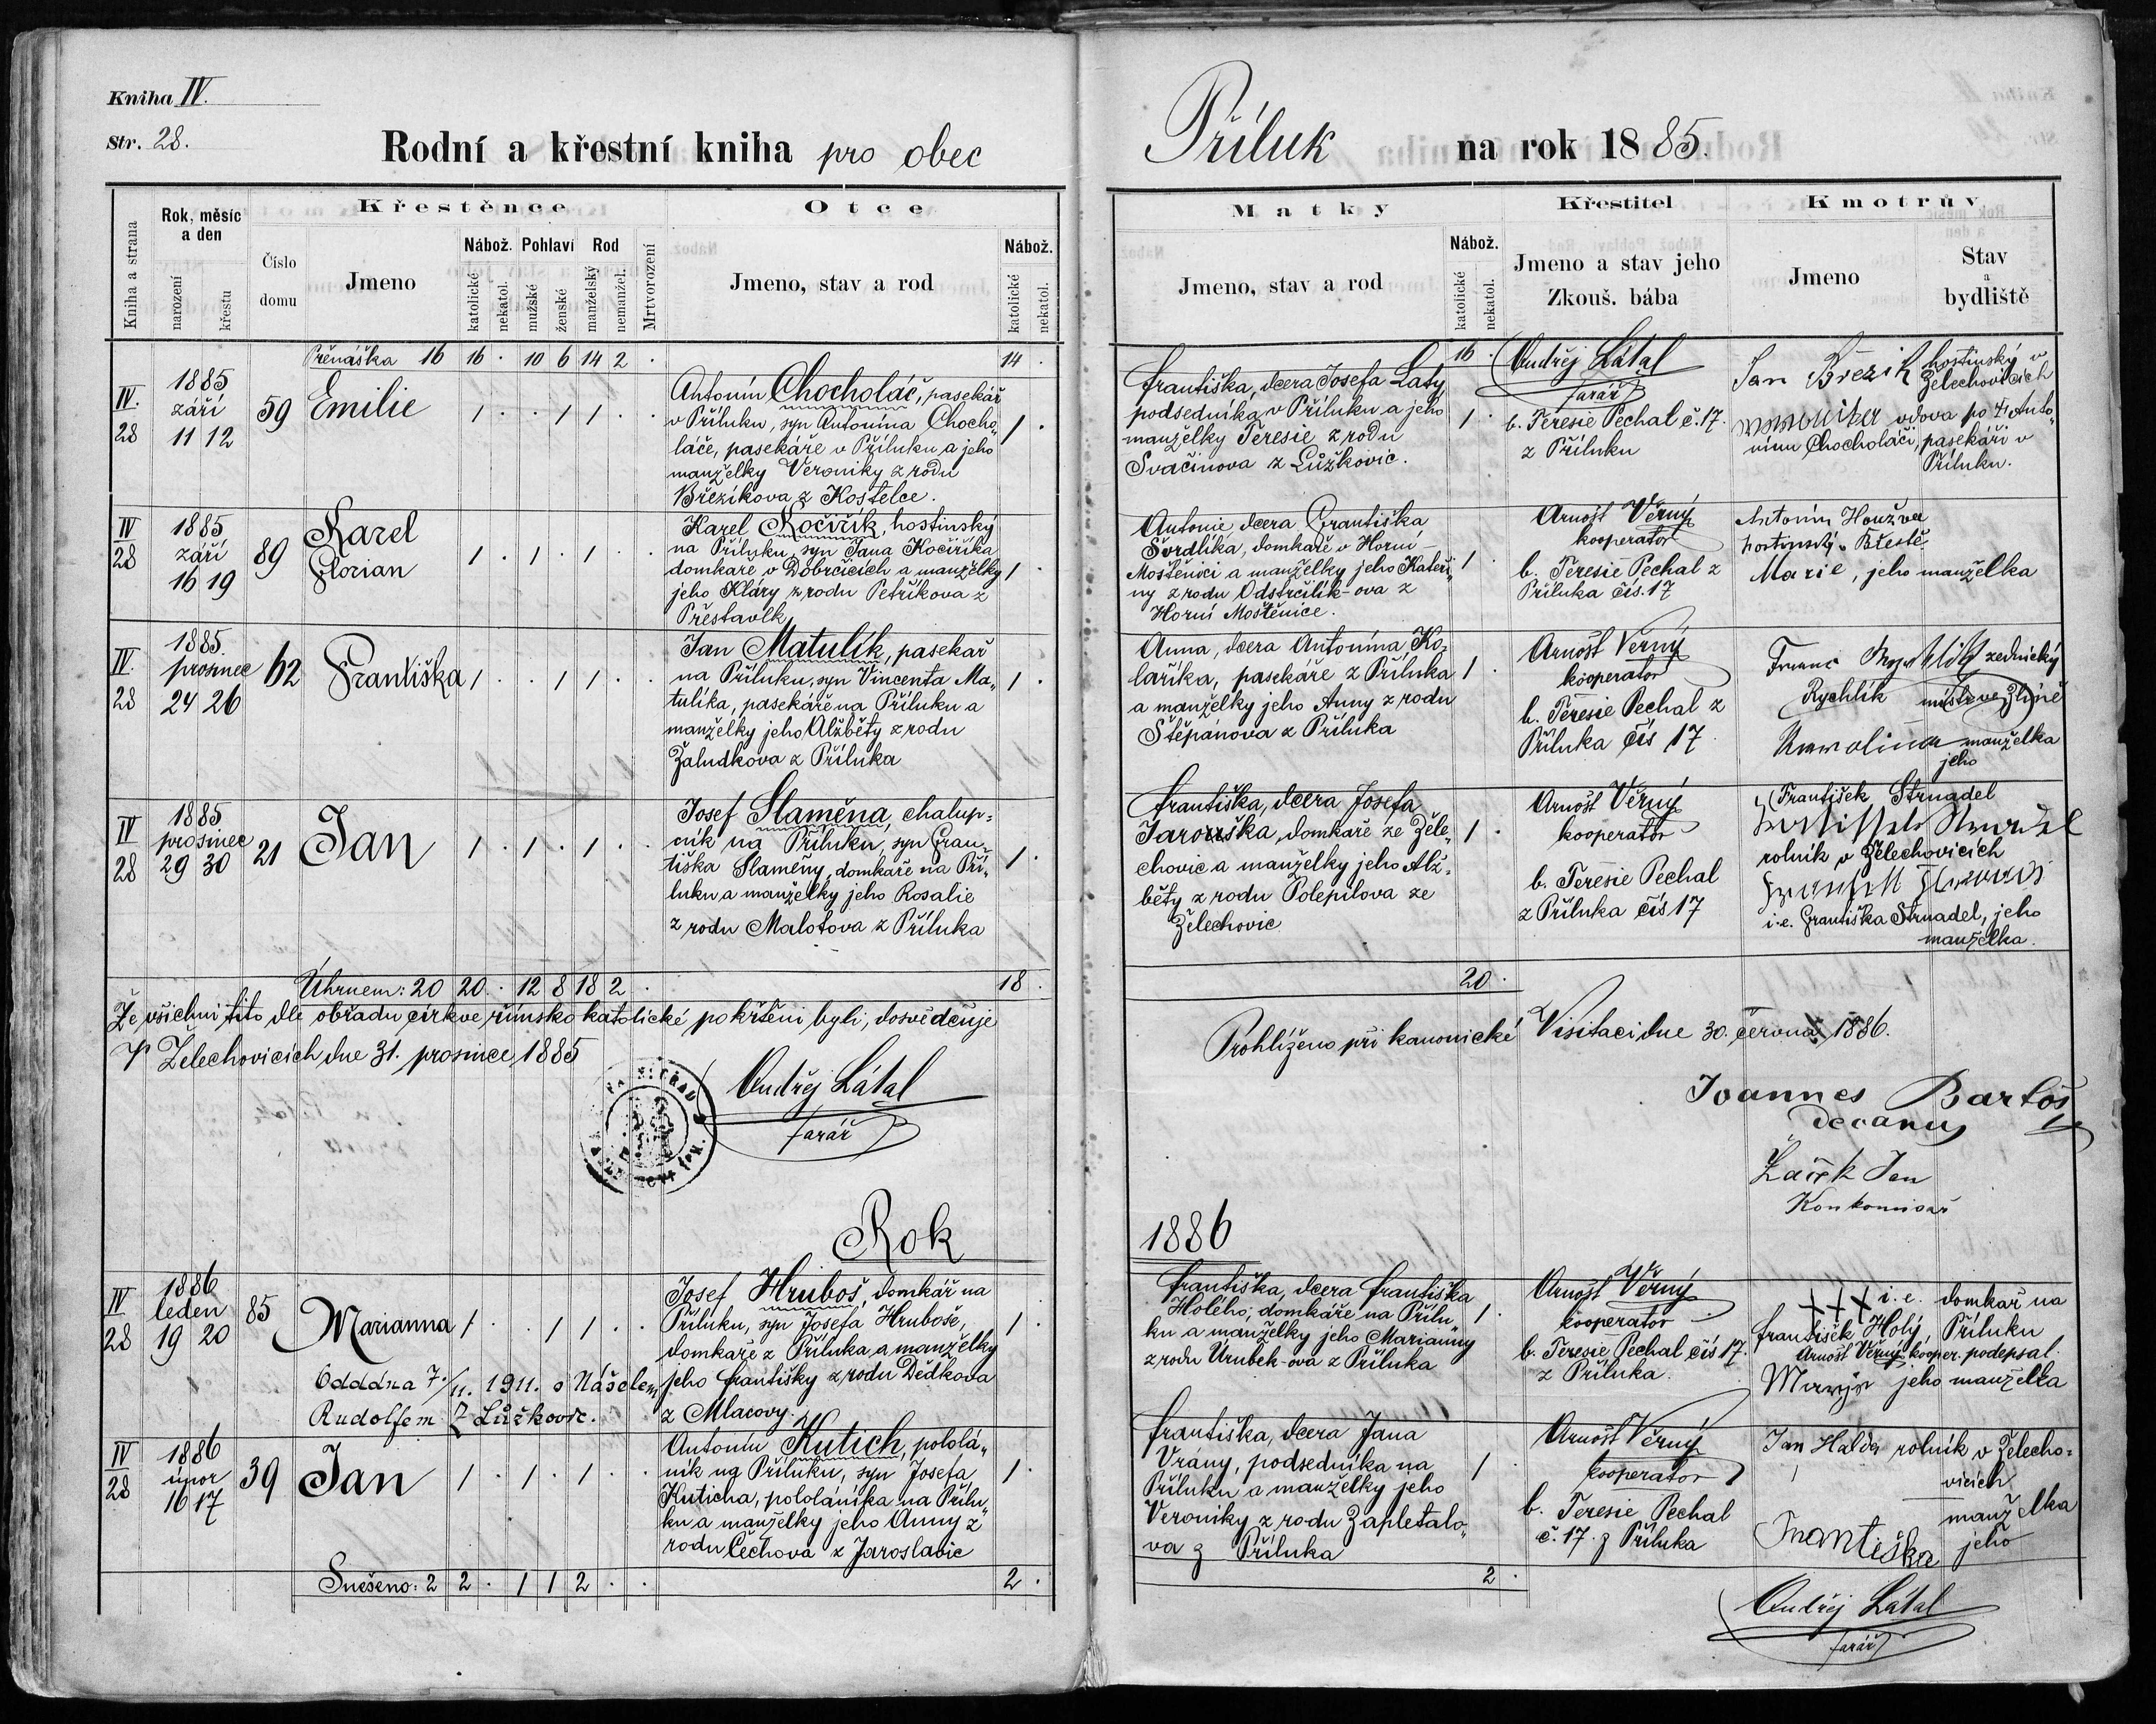 Kniha IV.
Str. 28.
Rodní a křestní kniha pro obec Příluk na rok 1885.
Kniha a strana
Rok, měsíc a den
narození
křestu
Číslo domu
Křestěnce
Jmeno
Nábož.
katolické
nekatol.
Pohlaví
mužské
ženské
Rod
manželský
nemanžel.
Mrtvorození
Otce
Jmeno, stav a rod
Nábož.
katolické
nekatol.
Matky
Jmeno, stav a rod
Nábož.
katolické
nekatol.
Křestitel
Jmeno a stav jeho
Zkouš. bába
Kmotrův
Jmeno
Stav a bydliště
Přenáška 16 16 . 10 6 14 2 . 14 . 16 .
IV. 28
1885
září
11 12
59
Emilie
1 . . 1 1 . .
Antonín Chocholáč, pasekář
v Příluku, syn Antonína Chocho„
láče, pasekáře v Příluku a jeho
manželky Veroniky z rodu
Březíkova z Kostelce.
1 .
Františka, dcera Josefa Laty,
podsedníka v Příluku a jeho
manželky Teresie z rodu
Svačinova z Lůžkovic.
1 .
Ondřej Látal
farář
b. Teresie Pechal č. 17.
z Příluku
Jan Březik hostinský v
Želechovicích
vdova po † Anto„
nínu Chocholáči, pasekáři v
Příluku.
IV 28
1885
září
16 19
89
Karel
Florian
1 . 1 . 1 . .
Karel Kočiřík, hostinský
na Příluku, syn Jana Kočiříka
domkaře v Dobrčicích a manželky
jeho Kláry z rodu Petříkova z
Přestavlk
1 .
Antonie dcera Františka
Švrdlíka, domkaře v Horní
Moštěnici a manželky jeho Kateři„
ny z rodu Odstrčilík-ova z
Horní Moštěnice.
1 .
Arnošt Věrný
kooperator
b. Teresie Pechal z
Příluka čís. 17
Antonín Houžva
hostinský v Břestě.
Marie, jeho manželka
IV. 28
1885.
prosinec
24 26
62
Františka
1 . . 1 1 . .
Jan Matulík, pasekař
na Příluku, syn Vincenta Ma„
tulíka, pasekáře na Příluku a
manželky jeho Alžběty z rodu
Žaludkova z Příluka
1 .
Anna, dcera Antonína Ko„
laříka, pasekáře z Příluka
a manželky jeho Anny z rodu
Štěpánova z Příluka
1 .
Arnošt Věrný
kooperator
b. Teresie Pechal z
Příluka čís 17
Franc zednický
Rychlík mistr ve Zlíně
Karolina manželka
jeho
IV 28
1885
prosinec
29 30
21
Jan
1 . 1 . 1 . .
Josef Slaměna, chalup=
ník na Příluku, syn Fran„
tiška Slaměny, domkaře na Pří„
luku a manželky jeho Rosalie
z rodu Malotova z Příluka
1 .
Františka, dcera Josefa
Jarouška, domkaře ze Žele„
chovic a manželky jeho Alž„
běty z rodu Polepilova ze
Želechovic
1 .
Arnošt Věrný
kooperator
b. Teresie Pechal
z Příluka čís 17
František Strnadel
rolník v Želechovicích
i. e. Františka Strnadel, jeho
manželka.
Úhrnem: 20 20 . 12 8 18 2 . 18 . 20 .
Že všichni tito dle obřadu církve římsko katolické pokřtěni byli, dosvědčuje
V Želechovicích dne 31. prosince 1885
Ondřej Látal
farář
Prohlíženo při kanonické Visitaci dne 30. června 1886.
Joannes Bartoš
decanus
Jan
Konkomisař
Rok 1886
IV 28
1886
leden
19 20
85
Marianna
1 . . 1 1 . .
Oddána 7./11. 1911. s Nášelem
Rudolfem z Lůžkovic.
Josef Hruboš, domkář na
Příluku, syn Josefa Hruboše,
domkaře z Příluka a manželky
jeho Františky z rodu Dědkova
z Mlacovy.
1 .
Františka, dcera Františka
Holého, domkáře na Přílu„
ku a manželky jeho Marianny
z rodu Urubek-ova z Příluka
1 .
Arnošt Věrný
kooperator
b. Teresie Pechal čís 17.
z Příluka.
+++ i. e. domkař na
František Holý, Příluku
Arnošt Věrný kooper. podepsal.
jeho manželka
IV 28
1886
únor
16 17
39
Jan
1 . 1 . 1 . .
Antonín Kutich, pololá„
ník na Příluku, syn Josefa
Kuticha, pololáníka na Přílu„
ku a manželky jeho Anny z
rodu Čechova z Jaroslavic
1 .
Františka, dcera Jana
Vrány, podsedníka na
Příluku a manželky jeho
Veroniky z rodu Zapletalo„
va z Příluka
1 .
Arnošt Věrný
kooperator
b. Teresie Pechal
č. 17. z Příluka
Jan Halda rolník v Želecho=
vicích
manželka
Františka jeho
Snešeno: 2 2 . 1 1 2 . . 2 . 2 .
Ondřej Látal
farář